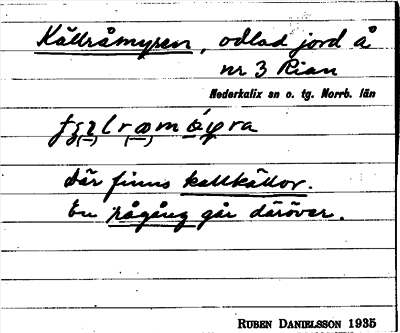 Källråmyren, odlad jord å
nr 3 Rian
Nederkalix sn o. tg. Norrb. län
där finns kallkällor.
En rågång går däröver.
RUBEN DANIELSSON 1935